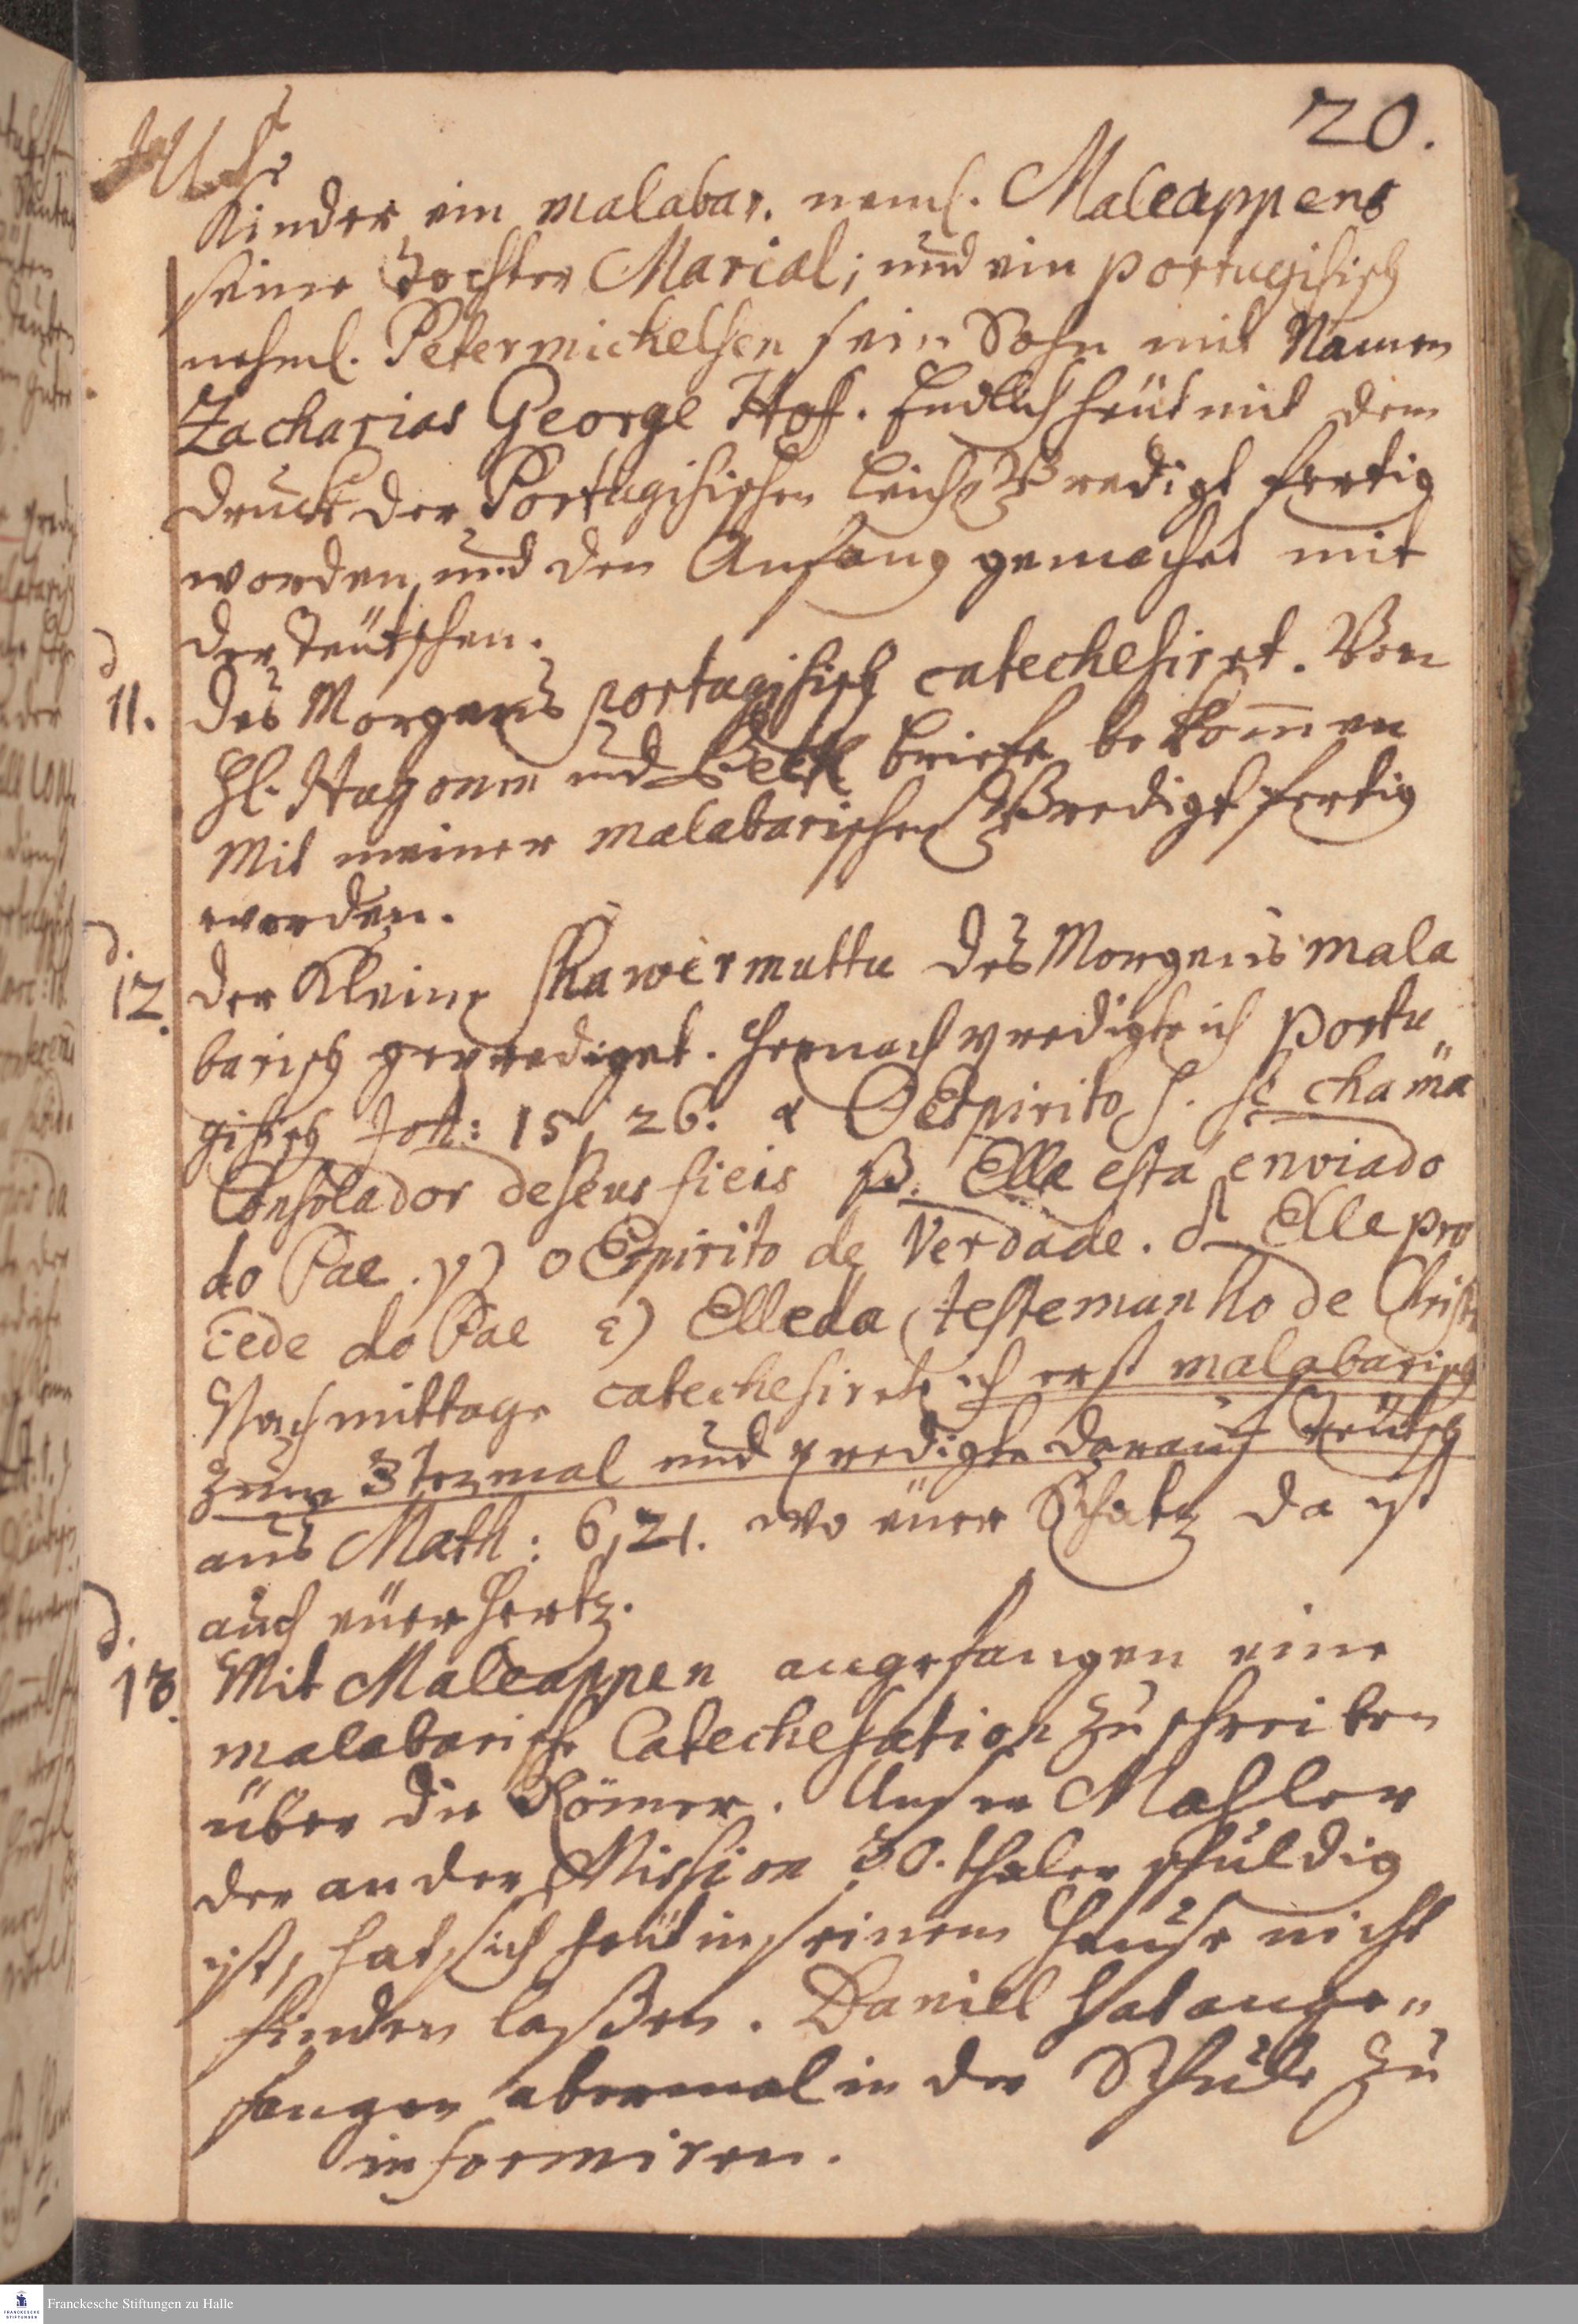 20.
Kinder, ein malabar. neml. Maleappens
seine Tochter Marial; und ein portugisisch
nehml. Petermichelsen sein Sohn mit Namen
Zacharias George Hoff. Endlich heüt mit dem
druck der Portugisischen Leich Predigt fertig
worden, und den Anfang gemachet mit
der Teütschen.
d
11. des Morgens portugisisch catechesiret. Von
H. und Briefe bekom̄en
Mit meiner malabarischen Predigt fertig
worden.
d.
12. der Kleine Schawrimuttu des Morgens mala
barisch geprediget. Hernach predigte ich portu„
gisisch Joh: 15, 26. α O Espirito S. se chama
Consolador de seus fieis β. Elle esta enviado
do Pae. γ) o Espirito de Verdade. δ Elle pro
cede do Pae ε) Elle da testemunho de Christo
Nachmittage catechesirete ich erst malabarisch
zum 3ten mal und predigte darauf Teütsch
aus Math: 6, 21. wo eüer Schatz da ist
auch eüer Hertz.
d.
13. Mit Maleappen angefangen eine
malabarische Catechesation zu schreiben
über die Römer. Unser Mahler
der an der Mission 30. thaler schuldig
ist, hat sich heüt in seinem Hause nicht
finden laßen. Daniel hat ange„
fangen abermal in der Schule zu
informiren.
Franckesche Stiftungen zu Halle